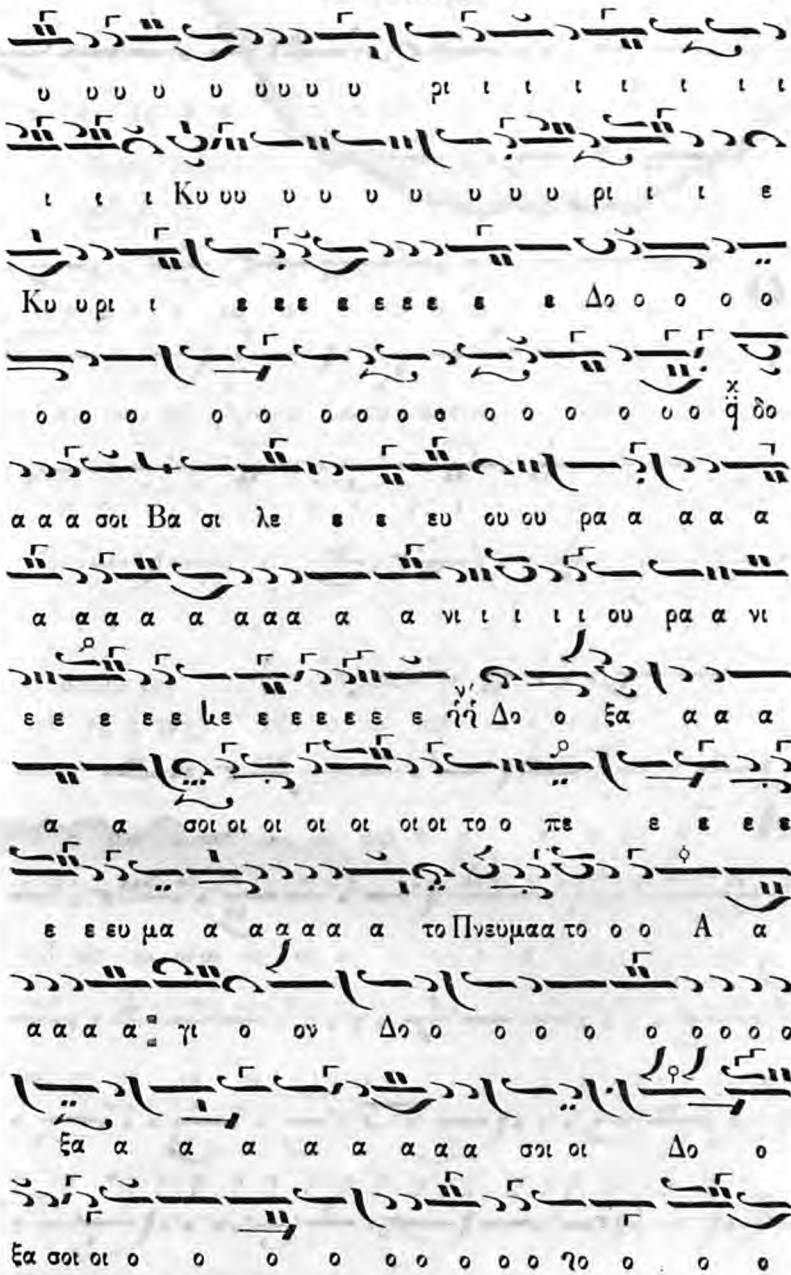 υ υ υ υ υ υ υ υ υ υ ρι ι ι ι ι ι ι ι
ι ι ι Κυ υυ υ υ υ υ υ υ υ ρι ι ι ε
Κυ υ ρι ι ε ε ε ε ε ε ε ε ε Δο ο ο ο ο
ο ο ο ο ο ο ο ο ο ο ο ο ο ο υ ο δο
α α α σοι Βα σι λε ε ε ευ ου ου ρα α α α α
α α α α α α α α α α νι ι ι ι ι ου ρα α νι
ε ε ε ε ε ε ε ε ε ε ε ε Δο ο ξα α α α
α α σοι οι οι οι οι οι οι το ο πε ε ε ε ε
ε ε ευ μα α α α α α α το Πνευμαα το ο ο Α α
α α α α γι ο ον Δο ο ο ο ο ο ο ο ο ο
ξα α α α α α α α α σοι οι Δο ο
ξα σοι οι ο ο ο ο ο ο ο ο ο ο ο ο ο